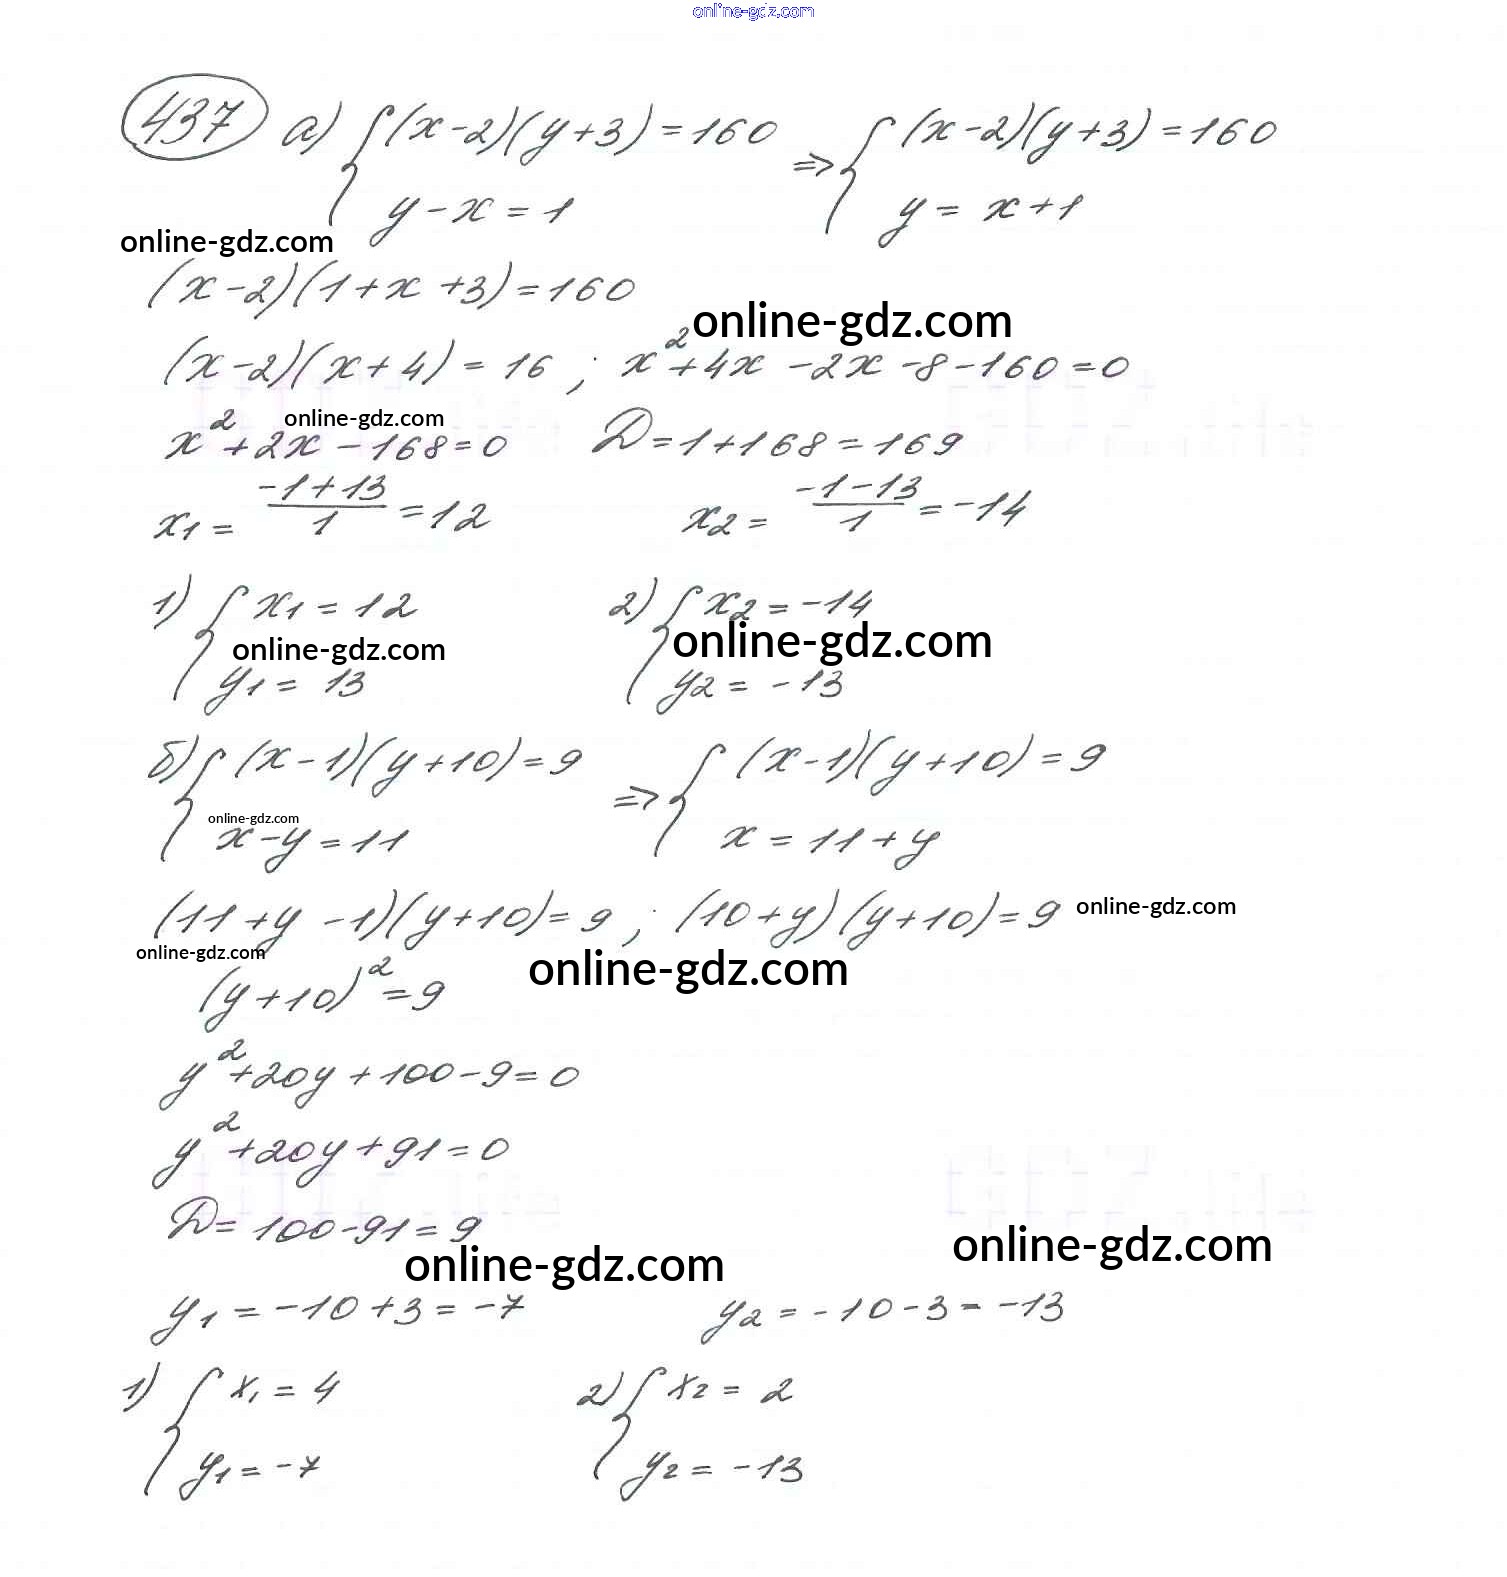 online-gdz.com
437 а) { (x-2)(y+3)=160 ⇒ { (x-2)(y+3)=160
y-x=1 y= x+1
online-gdz.com
(x-2)(1+x+3)=160
online-gdz.com
(x-2)(x+4)=16 ; x²+4x-2x-8-160=0
online-gdz.com
x²+2x-168=0 D=1+168=169
x1= (-1+13)/1 =12 x2= (-1-13)/1 =-14
1) { x1=12 2) { x2=-14
online-gdz.com online-gdz.com
y1= 13 y2= -13
б) { (x-1)(y+10)=9 ⇒ { (x-1)(y+10)=9
online-gdz.com
x-y=11 x=11+y
(11+y-1)(y+10)=9 ; (10+y)(y+10)=9 online-gdz.com
online-gdz.com online-gdz.com
(y+10)²=9
y²+20y+100-9=0
y²+20y+91=0
D=100-91=9
online-gdz.com online-gdz.com
y1=-10+3=-7 y2=-10-3=-13
1) { x1=4 2) { x2= 2
y1=-7 y2=-13